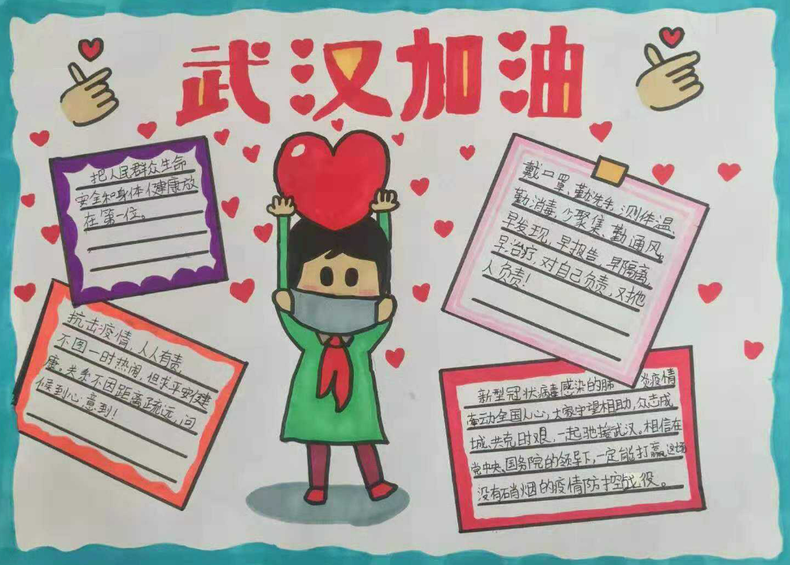 武汉加油
把人民群众生命
安全和身体健康放
在第一位。
戴口罩、勤洗手、测体温、
勤消毒、少聚集、勤通风、
早发现、早报告、早隔离、
早治疗，对自己负责，对他
人负责！
抗击疫情，人人有责，
不图一时热闹，但求平安健
康，关系不因距离疏远，问
候到心意到！
新型冠状病毒感染的肺炎疫情
牵动全国人心，大家守望相助、众志成
城、共克时艰，一起驰援武汉。相信在
党中央、国务院的领导下，一定能打赢这场
没有硝烟的疫情防控战役。